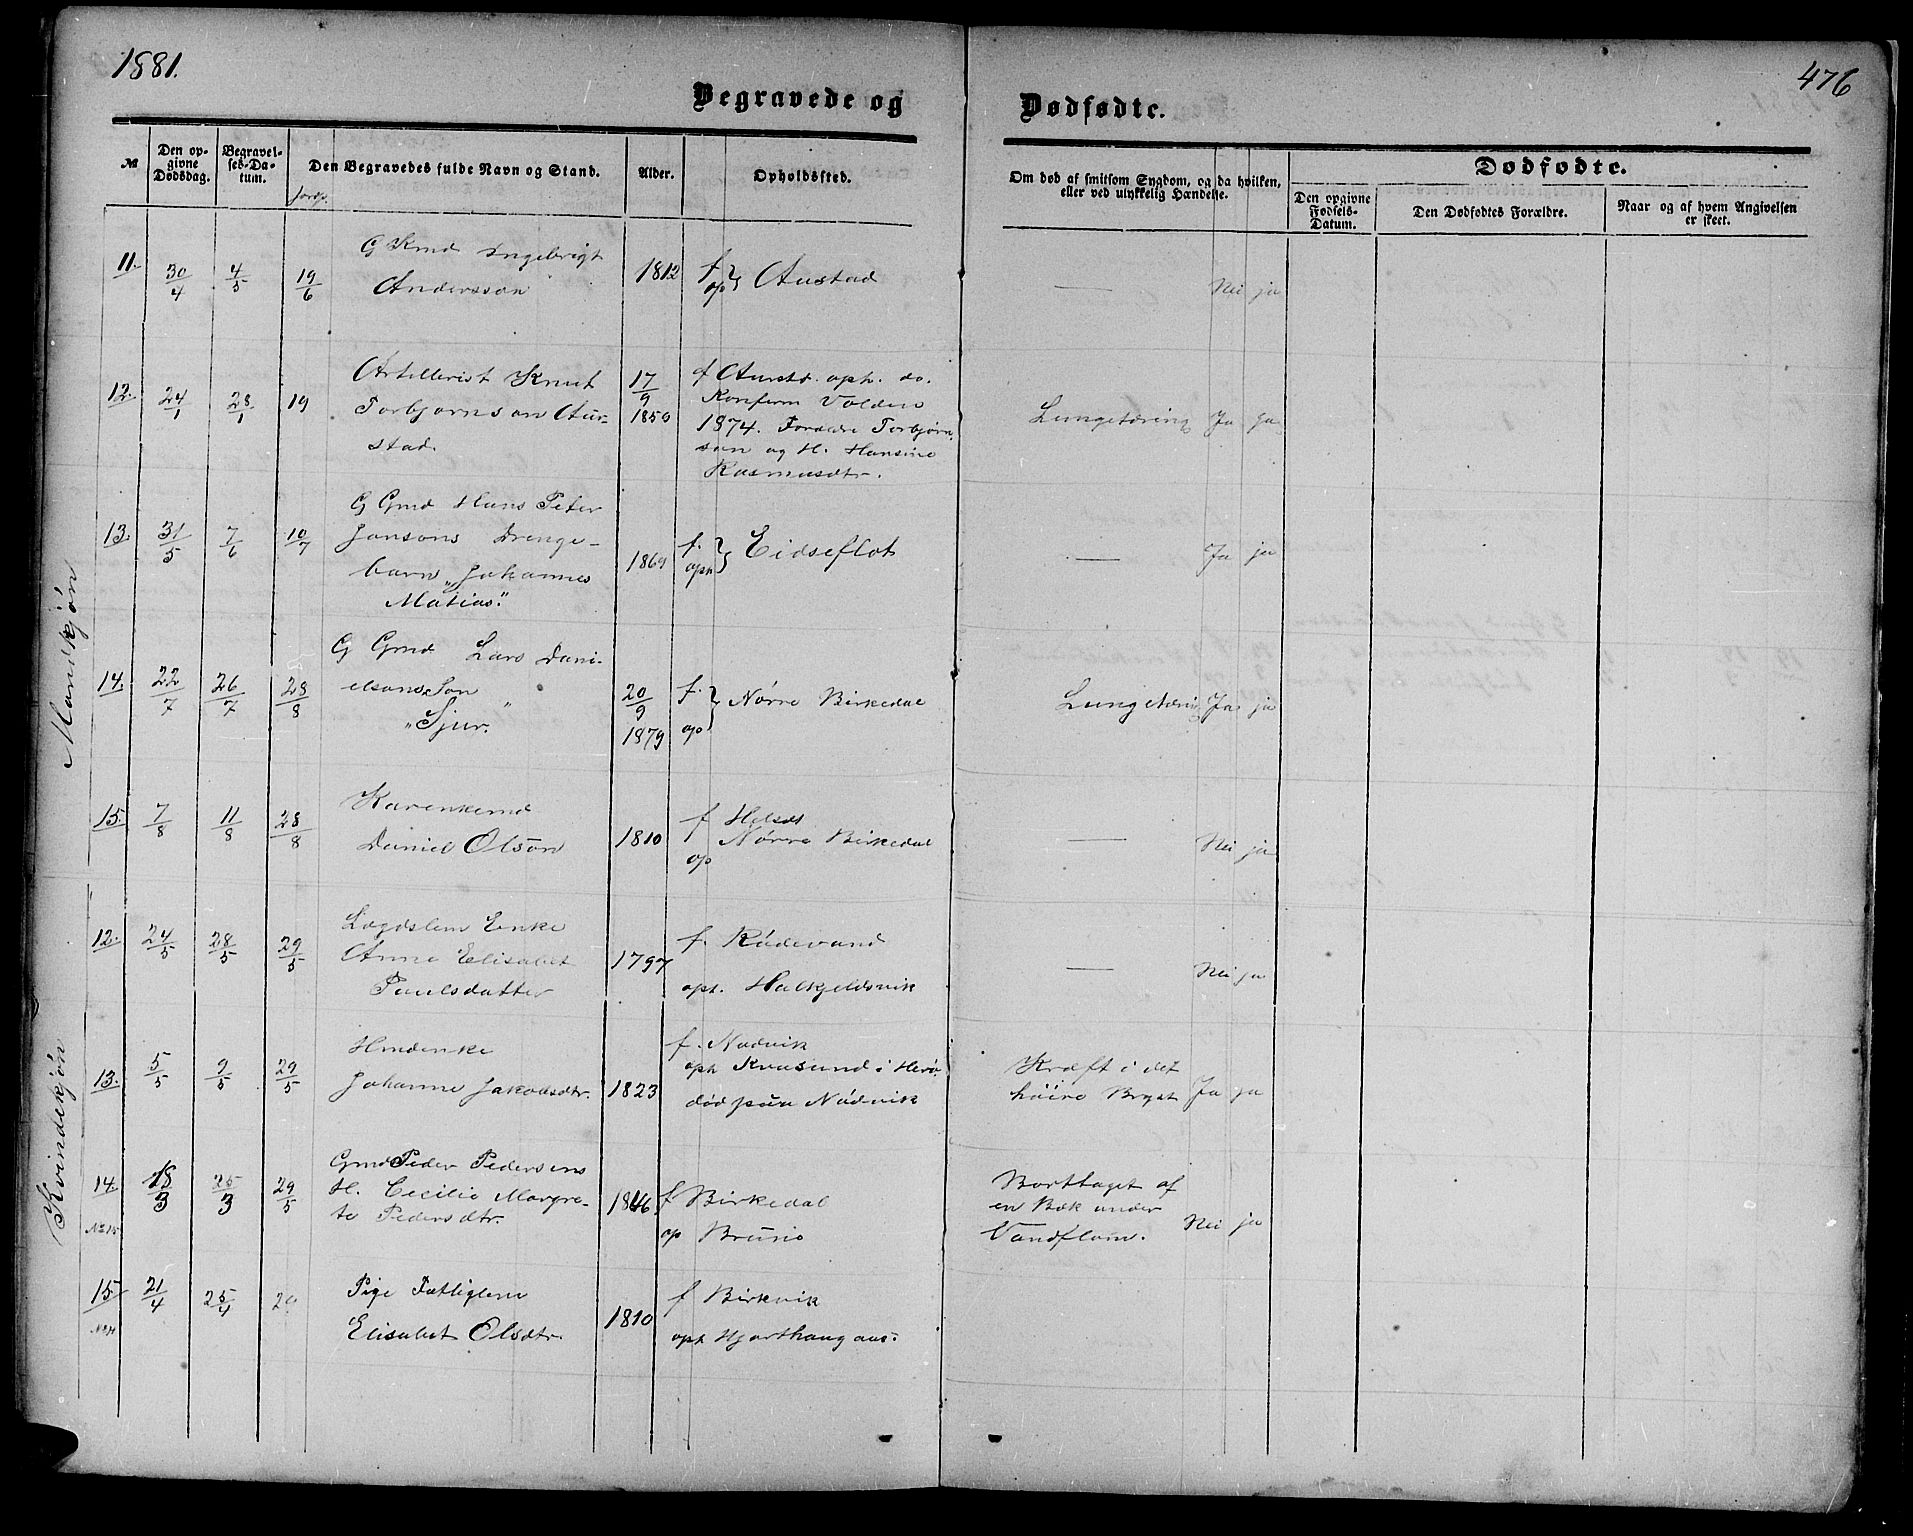 1881.
476
Begravede og Dødfødte.
№
Den opgivne Dødsdag.
Begravelses-Datum.
Jordp.
Den Begravedes fulde Navn og Stand.
Alder.
Opholdssted.
Om død af smitsom Sygdom, og da hvilken, eller ved ulykkelig Hændelse.
Dødfødte.
Den opgivne Fødsels-Datum.
Den Dødfødtes Forældre.
Naar og af hvem Angivelsen er skeet.
Mandkjøn
11. 30/4 4/5 19/6 G Kmd Ingebrigt 1812 f op } Austad — Nei ja
Anderson
12. 24/1 28/1 19 Artillerist Knut 17/9 1850 f Aurstd. oph. do.
Torbjørnson Aur- Konferm Volden Lungetæring Ja ja
stad. 1874. Forældre Torbjørn
son og H. Hansine
Rasmusdtr.
13. 31/5 7/6 10/7 G Gmd Hans Peter
Jonsons Drenge- 1869 f. oph } Eidseflot — Ja ja
barn „Johannes
Matias."
14. 22/7 26/7 28/8 G Gmd Lars Dani-
elsons Søn 20/9 1879 f. op } Nørre Birkedal Lungetæring Ja ja
„Sjur."
15. 7/8 11/8 28/8 Kaarenkemd f Helset
Daniel Olson 1810 op Nørre Birkedal — Nei ja
Kvindekjøn
12. 24/5 28/5 29/5 Lægdslem Enke f. Rødevand
Anne Elisabet 1797 — Nei ja
Paulsdatter oph. Halkjeldsvik
13. 5/5 9/5 29/5 Hmdenke f. Nødvik
Johanne Jakobsdtr. 1823 oph Kvusund i Herø Kræft i det
død paa Nødvik høire Bryst Ja ja
14. 18/3 25/3 29/5 Gmd Peder Pedersens
H. Cecilie Margre- 1846 f Birkedal Borttaget af
№ 15 te Pedersdtr. op Brune en Bæk under
Vandflom. Nei ja
15 21/4 25/4 29 Pige Fattiglem f Birkvik
Elisabet Olsdtr. 1810 oph Hjorthaug aus: